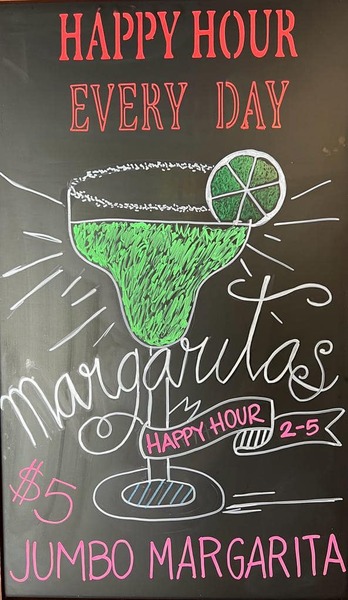 HAPPY HOUR
EVERY DAY
margaritas
HAPPY HOUR 2-5
$5
JUMBO MARGARITA